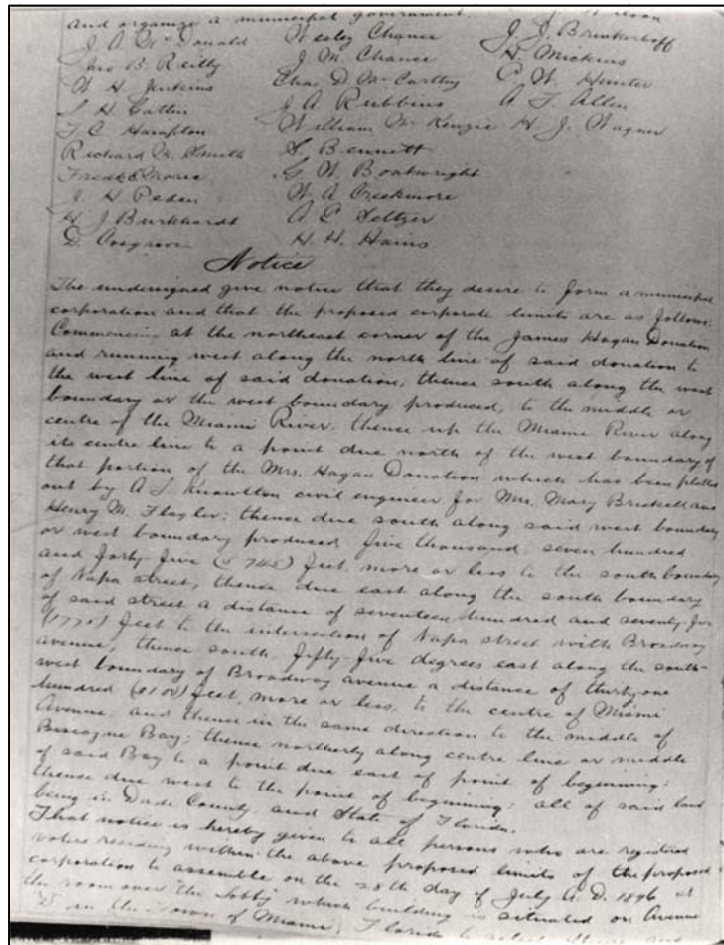 and organize a municipal government.
J. A. McDonald Wesley Chance J. J. Brinkerhoff
Jno B. Reilly J. M. Chance H. Mickens
W. H. Jenkins Chas D. McCarthy C. W. Hunter
J. A. Rubbins A. F. Allen
T. C. Hampton William McKenzie H. J. Wagner
Richard M. Smith S. Bennett
G. W. Boatwright
J. H. Peden W. A. Creekmore
H. J. Burkhardt A. C. Seltzer
D. Cosgrove H. H. Hains
Notice
The undersigned give notice that they desire to form a municipal
corporation and that the proposed corporate limits are as follows:
Commencing at the northeast corner of the James Hagan Donation
and running west along the north line of said donation to
the west line of said donation, thence south along the west
boundary or the west boundary produced, to the middle or
centre of the Miami River. thence up the Miami River along
its centre line to a point due north of the west boundary of
that portion of the Mrs. Hagan Donation which has been platted
out by A. L. Knowlton civil engineer for Mrs. Mary Brickell and
Henry M. Flagler; thence due south along said west boundary
or west boundary produced, five thousand, seven hundred
and forty-five (5745) feet, more or less to the south boundary
of Napa street, thence due east along the south boundary
of said street a distance of seventeen hundred and seventy-five
(1775) feet to the intersection of Napa street with Broadway
avenue, thence south fifty-five degrees east along the south-
west boundary of Broadway avenue a distance of thirty one
hundred feet, more or less, to the centre of Miami
Avenue, and thence in the same direction to the middle of
Biscayne Bay; thence northerly along centre line or middle
of said Bay to a point due east of point of beginning;
thence due west to the point of beginning; all of said land
being in Dade County and State of Florida.
That notice is hereby given to all persons who are registered
voters residing within the above proposed limits of the proposed
corporation to assemble on the 28th day of July A. D. 1896 at
the room over the "Lobby" which building is situated on Avenue
"D" in the town of Miami, Florida to select